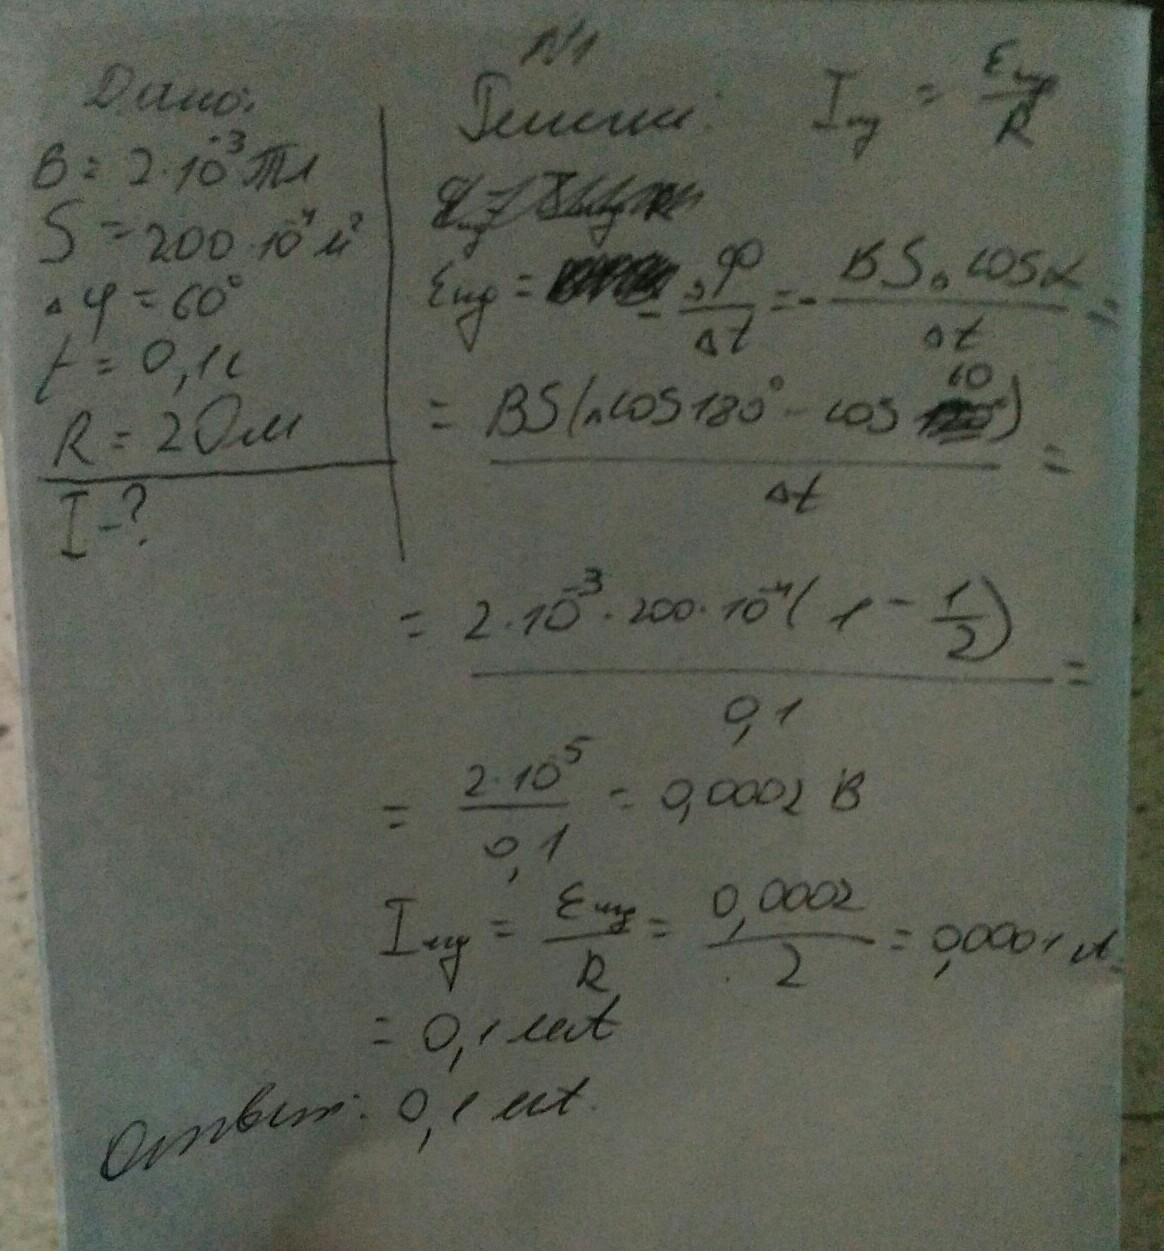 N1
Дано:
B = 2·10⁻³ Тл
S = 200·10⁻⁴ м²
Δφ = 60°
t = 0,1 с
R = 2 Ом
I - ?
Решение: Iинд = Εинд/R
Εинд = -ΔΦ/Δt = - BSΔcosα/Δt =
= BS( cos180° - cos 60)/Δt =
= 2·10⁻³·200·10⁻⁴(1 - 1/2)/0,1 =
= 2·10⁻⁵/0,1 = 0,0002 В
Iинд = Εинд/R = 0,0002/2 = 0,0001 А =
= 0,1 мА
Ответ: 0,1 мА.